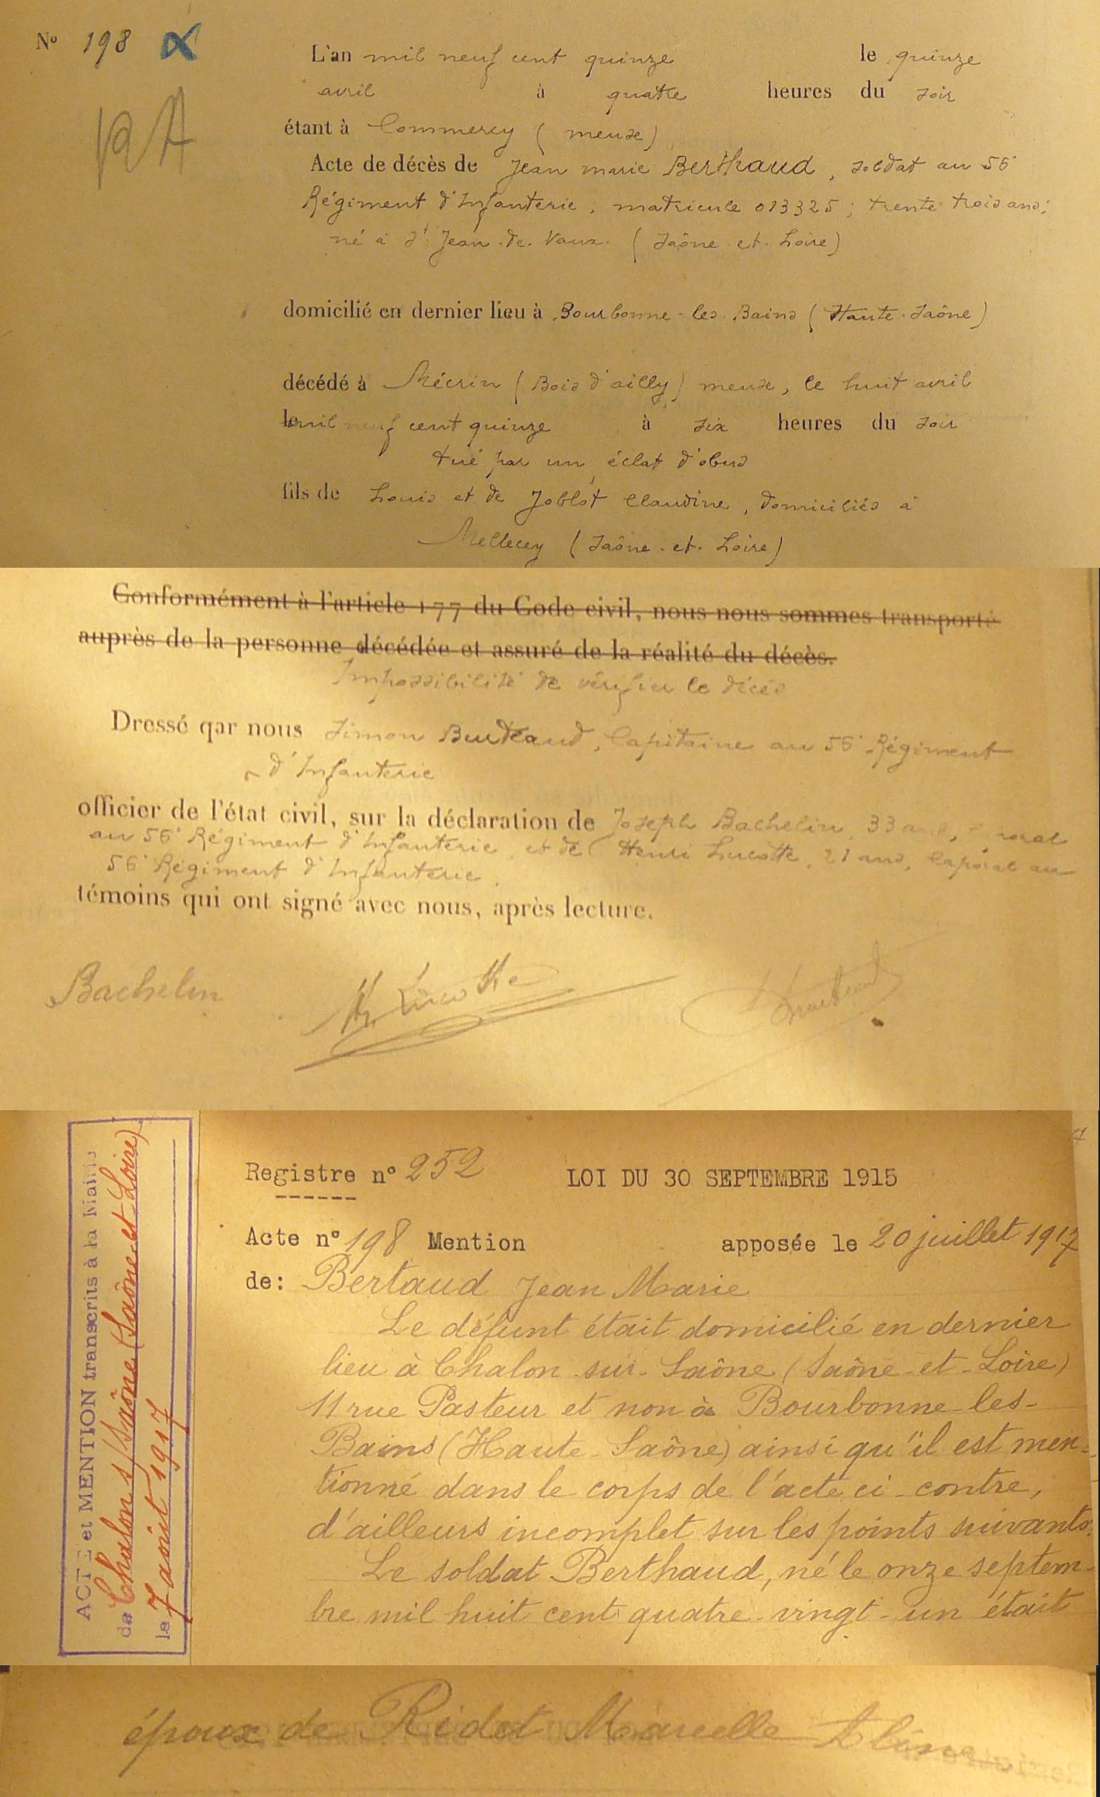 N° 198
L'an mil neuf cent quinze le quinze
avril à quatre heures du soir
étant à Commercy (meuse)
Acte de décès de Jean marie Berthaud, soldat au 56e
Régiment d'Infanterie, matricule 013325; trente trois ans;
né à St Jean-de-Vaux (Saône-et-Loire)
domicilié en dernier lieu à Bourbonne-les-Bains (Haute-Saône)
décédé à Mécrin (Bois d'ailly) meuse, le huit avril
le mil neuf cent quinze à six heures du soir
tué par un éclat d'obus
fils de Louis et de Joblot Claudine, domiciliés à
Mellecey (Saône-et-Loire)
Conformément à l'article 77 du Code civil, nous nous sommes transporté
auprès de la personne décédée et assuré de la réalité du décès.
Impossibilité de vérifier le décès
Dressé qar nous Simon , Capitaine au 56e Régiment
d'Infanterie
officier de l'état civil, sur la déclaration de Joseph Bachelin, 33 ans,
au 56e Régiment d'Infanterie, et de Henri Lucotte, 21 ans, Caporal au
56e Régiment d'Infanterie.
témoins qui ont signé avec nous, après lecture.
Bachelin H. Lucotte
ACTE et MENTION transcrits à la Mairie
de Chalon s/Saône (Saône-et-Loire)
le 7 août 1917
Registre n° 252 LOI DU 30 SEPTEMBRE 1915
Acte n° 198 Mention apposée le 20 juillet 1917
de: Bertaud Jean Marie
Le défunt était domicilié en dernier
lieu à Chalon-sur-Saône (Saône-et-Loire)
11 rue Pasteur et non à Bourbonne-les-
Bains (Haute-Saône) ainsi qu'il est men-
tionné dans le corps de l'acte ci-contre,
d'ailleurs incomplet sur les points suivants.
Le soldat Berthaud, né le onze septem-
bre mil huit cent quatre-vingt-un était
époux de Ridet Marcelle Aline